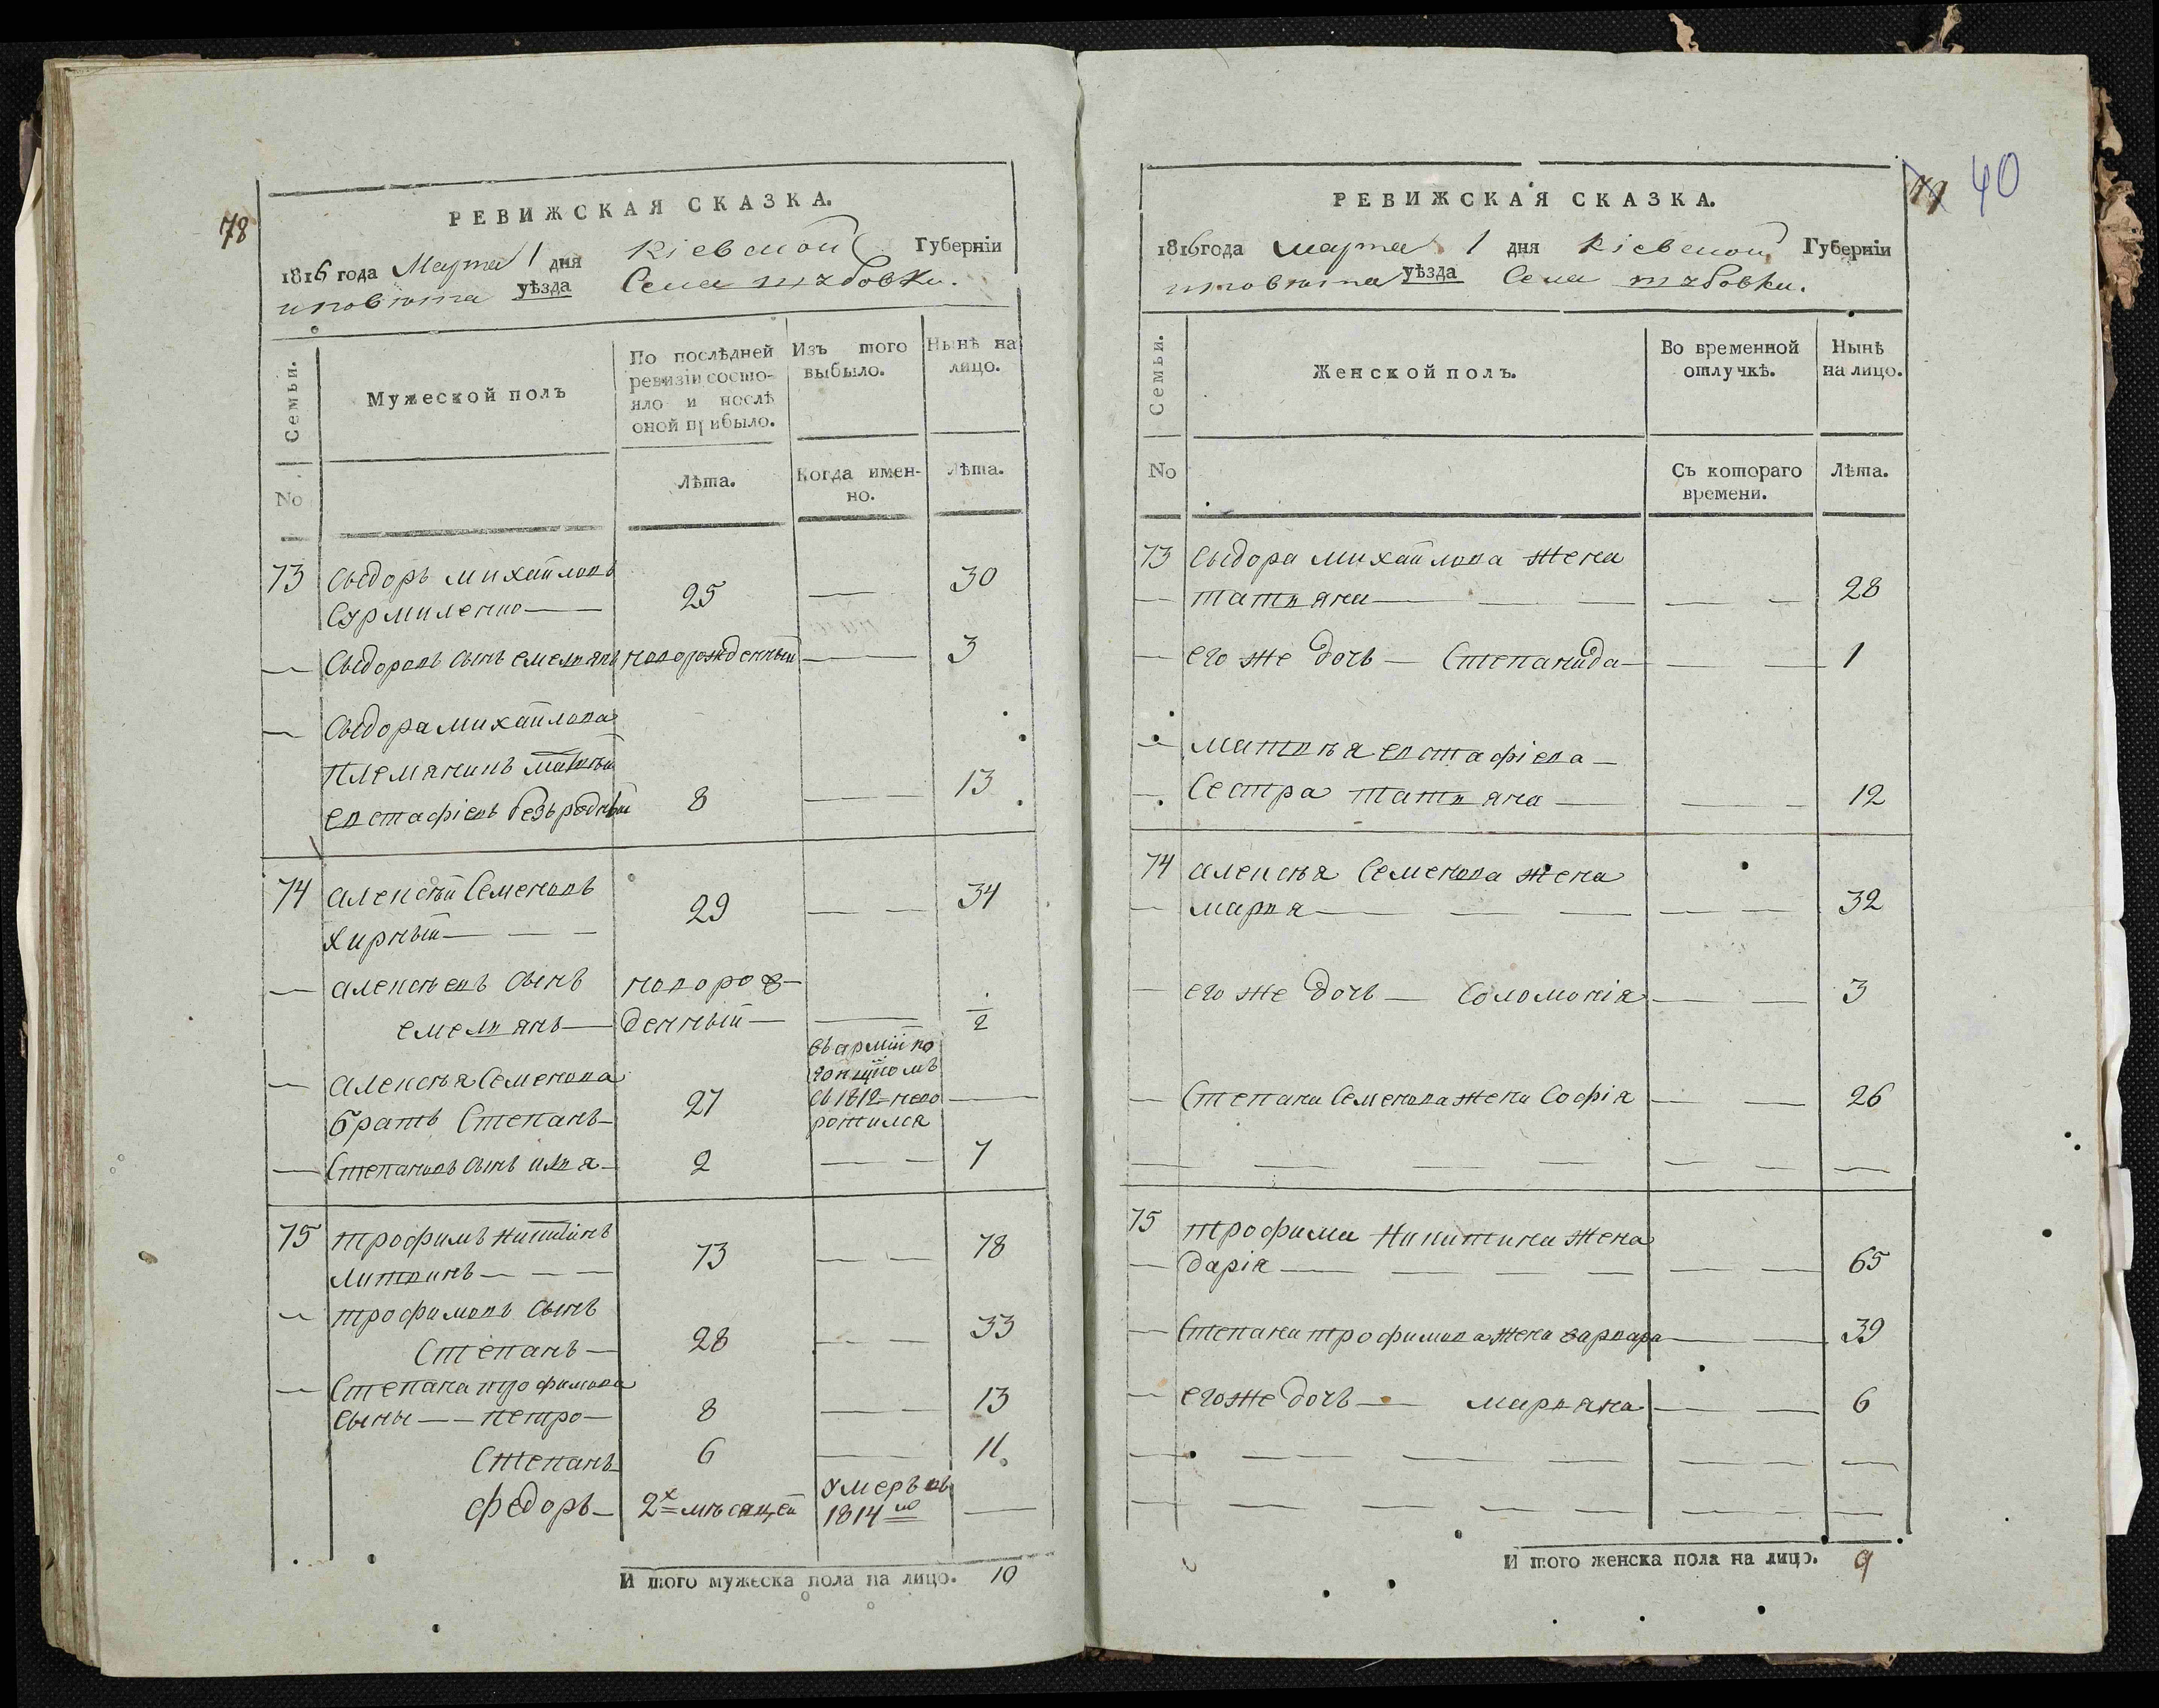 78
РЕВИЖСКАЯ СКАЗКА.
1816 года Марта 1 дня Кіевской Губерніи
иповѣта уѣзда Села
Семьи.
No
Мужеской полъ
По послѣдней
ревизіи состо-
яло и послѣ
оной прибыло.
Лѣта.
Изъ того
выбыло.
Когда имен-
но.
Нынѣ на
лицо.
Лѣта.
73 Сыдоръ михайловъ
Сурмиленко 25 — 30
— Сыдоровъ сынъ емельянъ новорожденный — 3
— Сыдора михайлова
племяникъ матвѣй
евстафіевъ безъродный 8 — 13
74 алексѣй Семеновъ
Хирный 29 — 34
— алексѣевъ сынъ новорож-
емельянъ — денный — 2
— алексѣя Семенова
братъ Степанъ 27 въ армій по
гонщикомъ
съ 1812 нево
ротился —
— Степановъ сынъ илья 2 — 7
75 трофимъ никитинъ
литвинъ 73 — 78
— трофимовъ сынъ
Степанъ 28 — 33
— Степана трофимова
сыны — петро 8 — 13
Степанъ 6 — 11
федоръ 2х мѣсяцей умеръ въ
1814мъ —
И того мужеска пола на лицо. 10
40
РЕВИЖСКАЯ СКАЗКА.
1816 года марта 1 дня Кіевской Губерніи
иповѣта уѣзда Села
Семьи.
No
Женской полъ.
Во временной
отлучкѣ.
Съ котораго
времени.
Нынѣ
на лицо.
Лѣта.
73 Сыдора михайлова жена
— татьяна — 28
— его же дочь — Степанида — 1
— матвѣя евстафіева
— Сестра татьяна — 12
74 алексѣя Семенова жена
— марья — 32
— его же дочь — Соломонія — 3
— Степана Семенова жена Софія — 26
75 трофима никитина жена
— дарія — 65
— Степана трофимова жена варвара — 39
— его же дочь — марьяна — 6
И того женска пола на лицо. 9